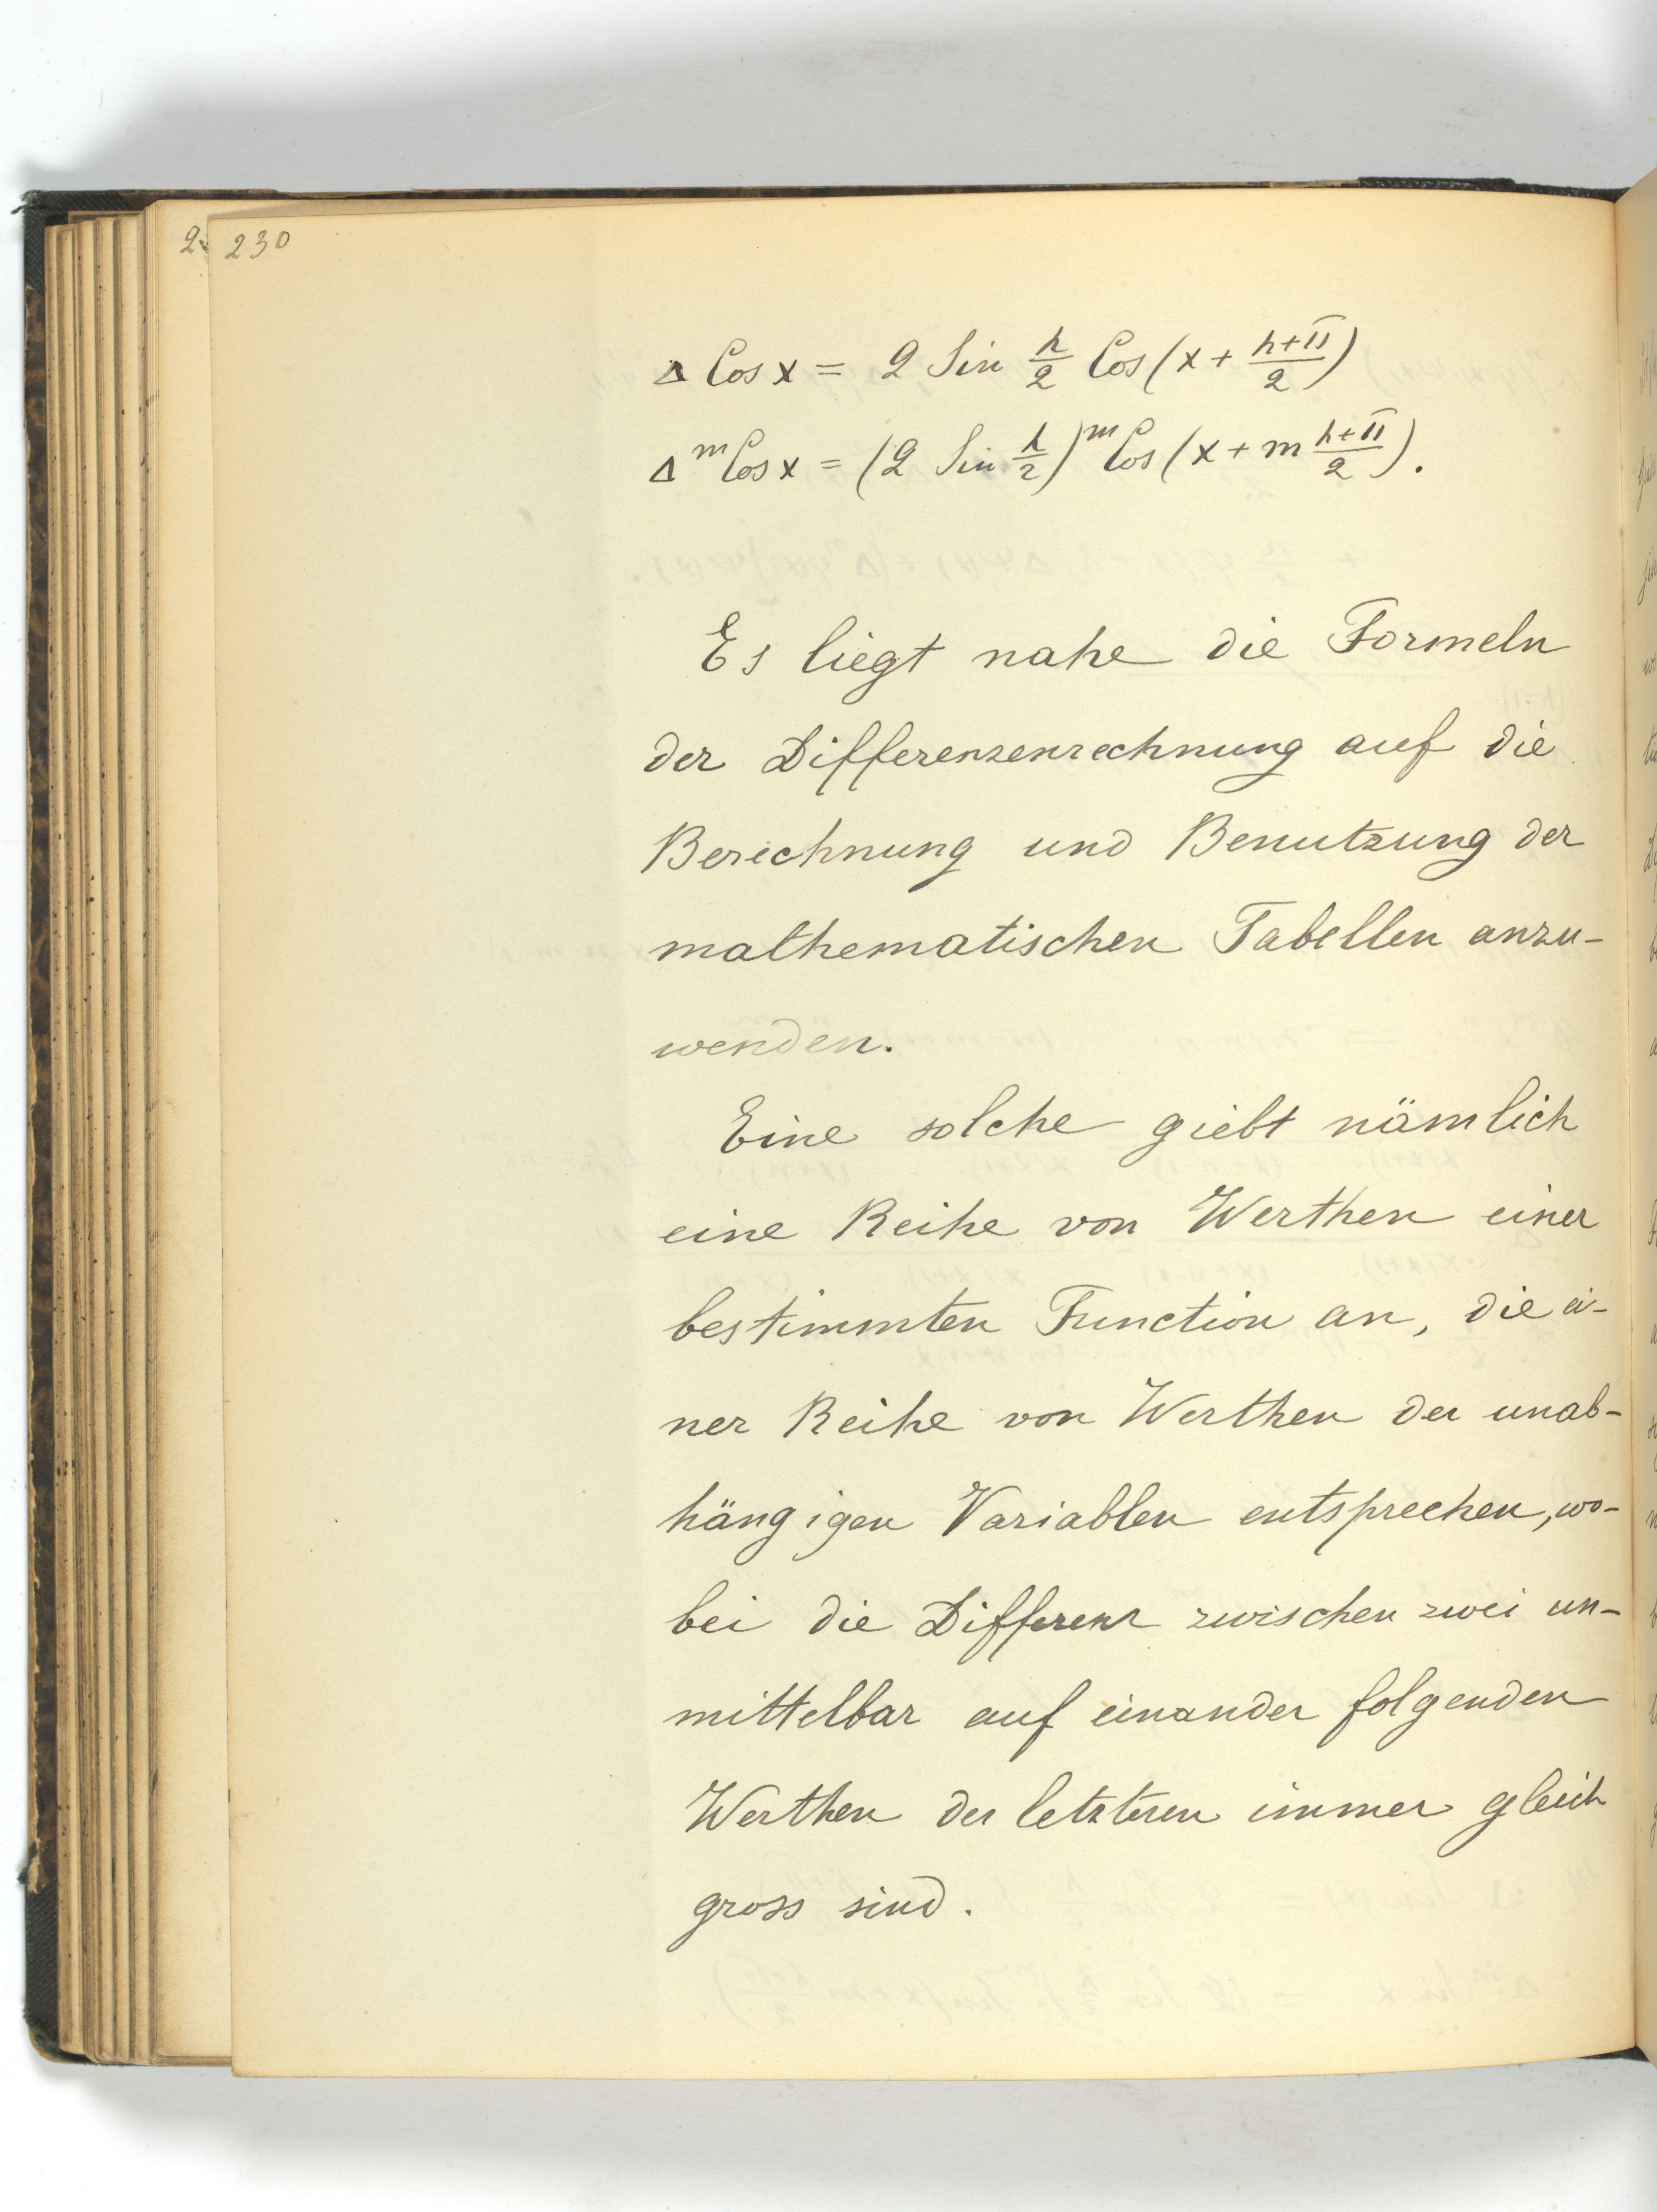 230
Δ Cos x = 2 Sin h/2 Cos (x + (h+π)/2)
Δ^m Cos x = (2 Sin h/2)^m Cos (x + m (h+π)/2).
Es liegt nahe die Formeln
der Differenzenrechnung auf die
Berechnung und Benutzung der
mathematischen Tabellen anzu-
wenden.
Eine solche giebt nämlich
eine Reihe von Werthen einer
bestimmten Function an, die ei-
ner Reihe von Werthen der unab-
hängigen Variablen entsprechen, wo-
bei die Differenz zwischen zwei un-
mittelbar auf einander folgenden
Werthen der letzteren immer gleich
gross sind.